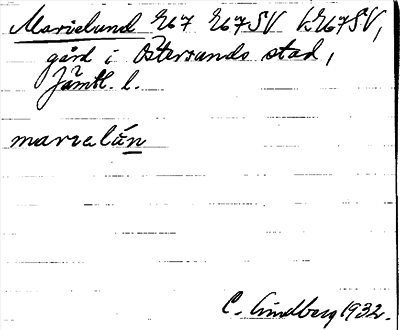 Marielund E67 E67SV l. E67SV,
gård i Östersunds stad,
Jämtl. l.
marelún
C. Lindberg 1932.